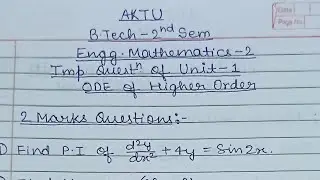 Date
Page No.
AKTU
B.Tech - 2nd Sem
Engg. Mathematics - 2
Imp Questn of Unit - 1
ODE of Higher Order
2 Marks Questions:-
Find P.I. of d²y/dx² + 4y = Sin2x.